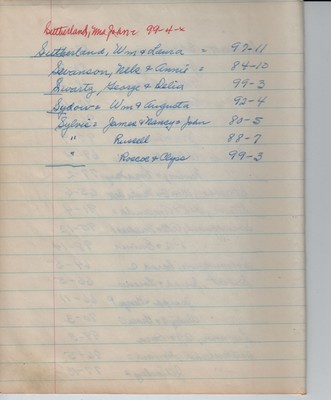 Sutherland, Mrs Joan = 99-4-x
Sutherland, Wm & Laura = 97-11
Swanson, Nels & Annie = 84-10
Swartz, George & Delia 99-3
Sydow = Wm & Augusta 92-4
Sylvis = James & Nancy & Joan 80-5
" Russell 88-7
" Roscoe & Clyss 99-3